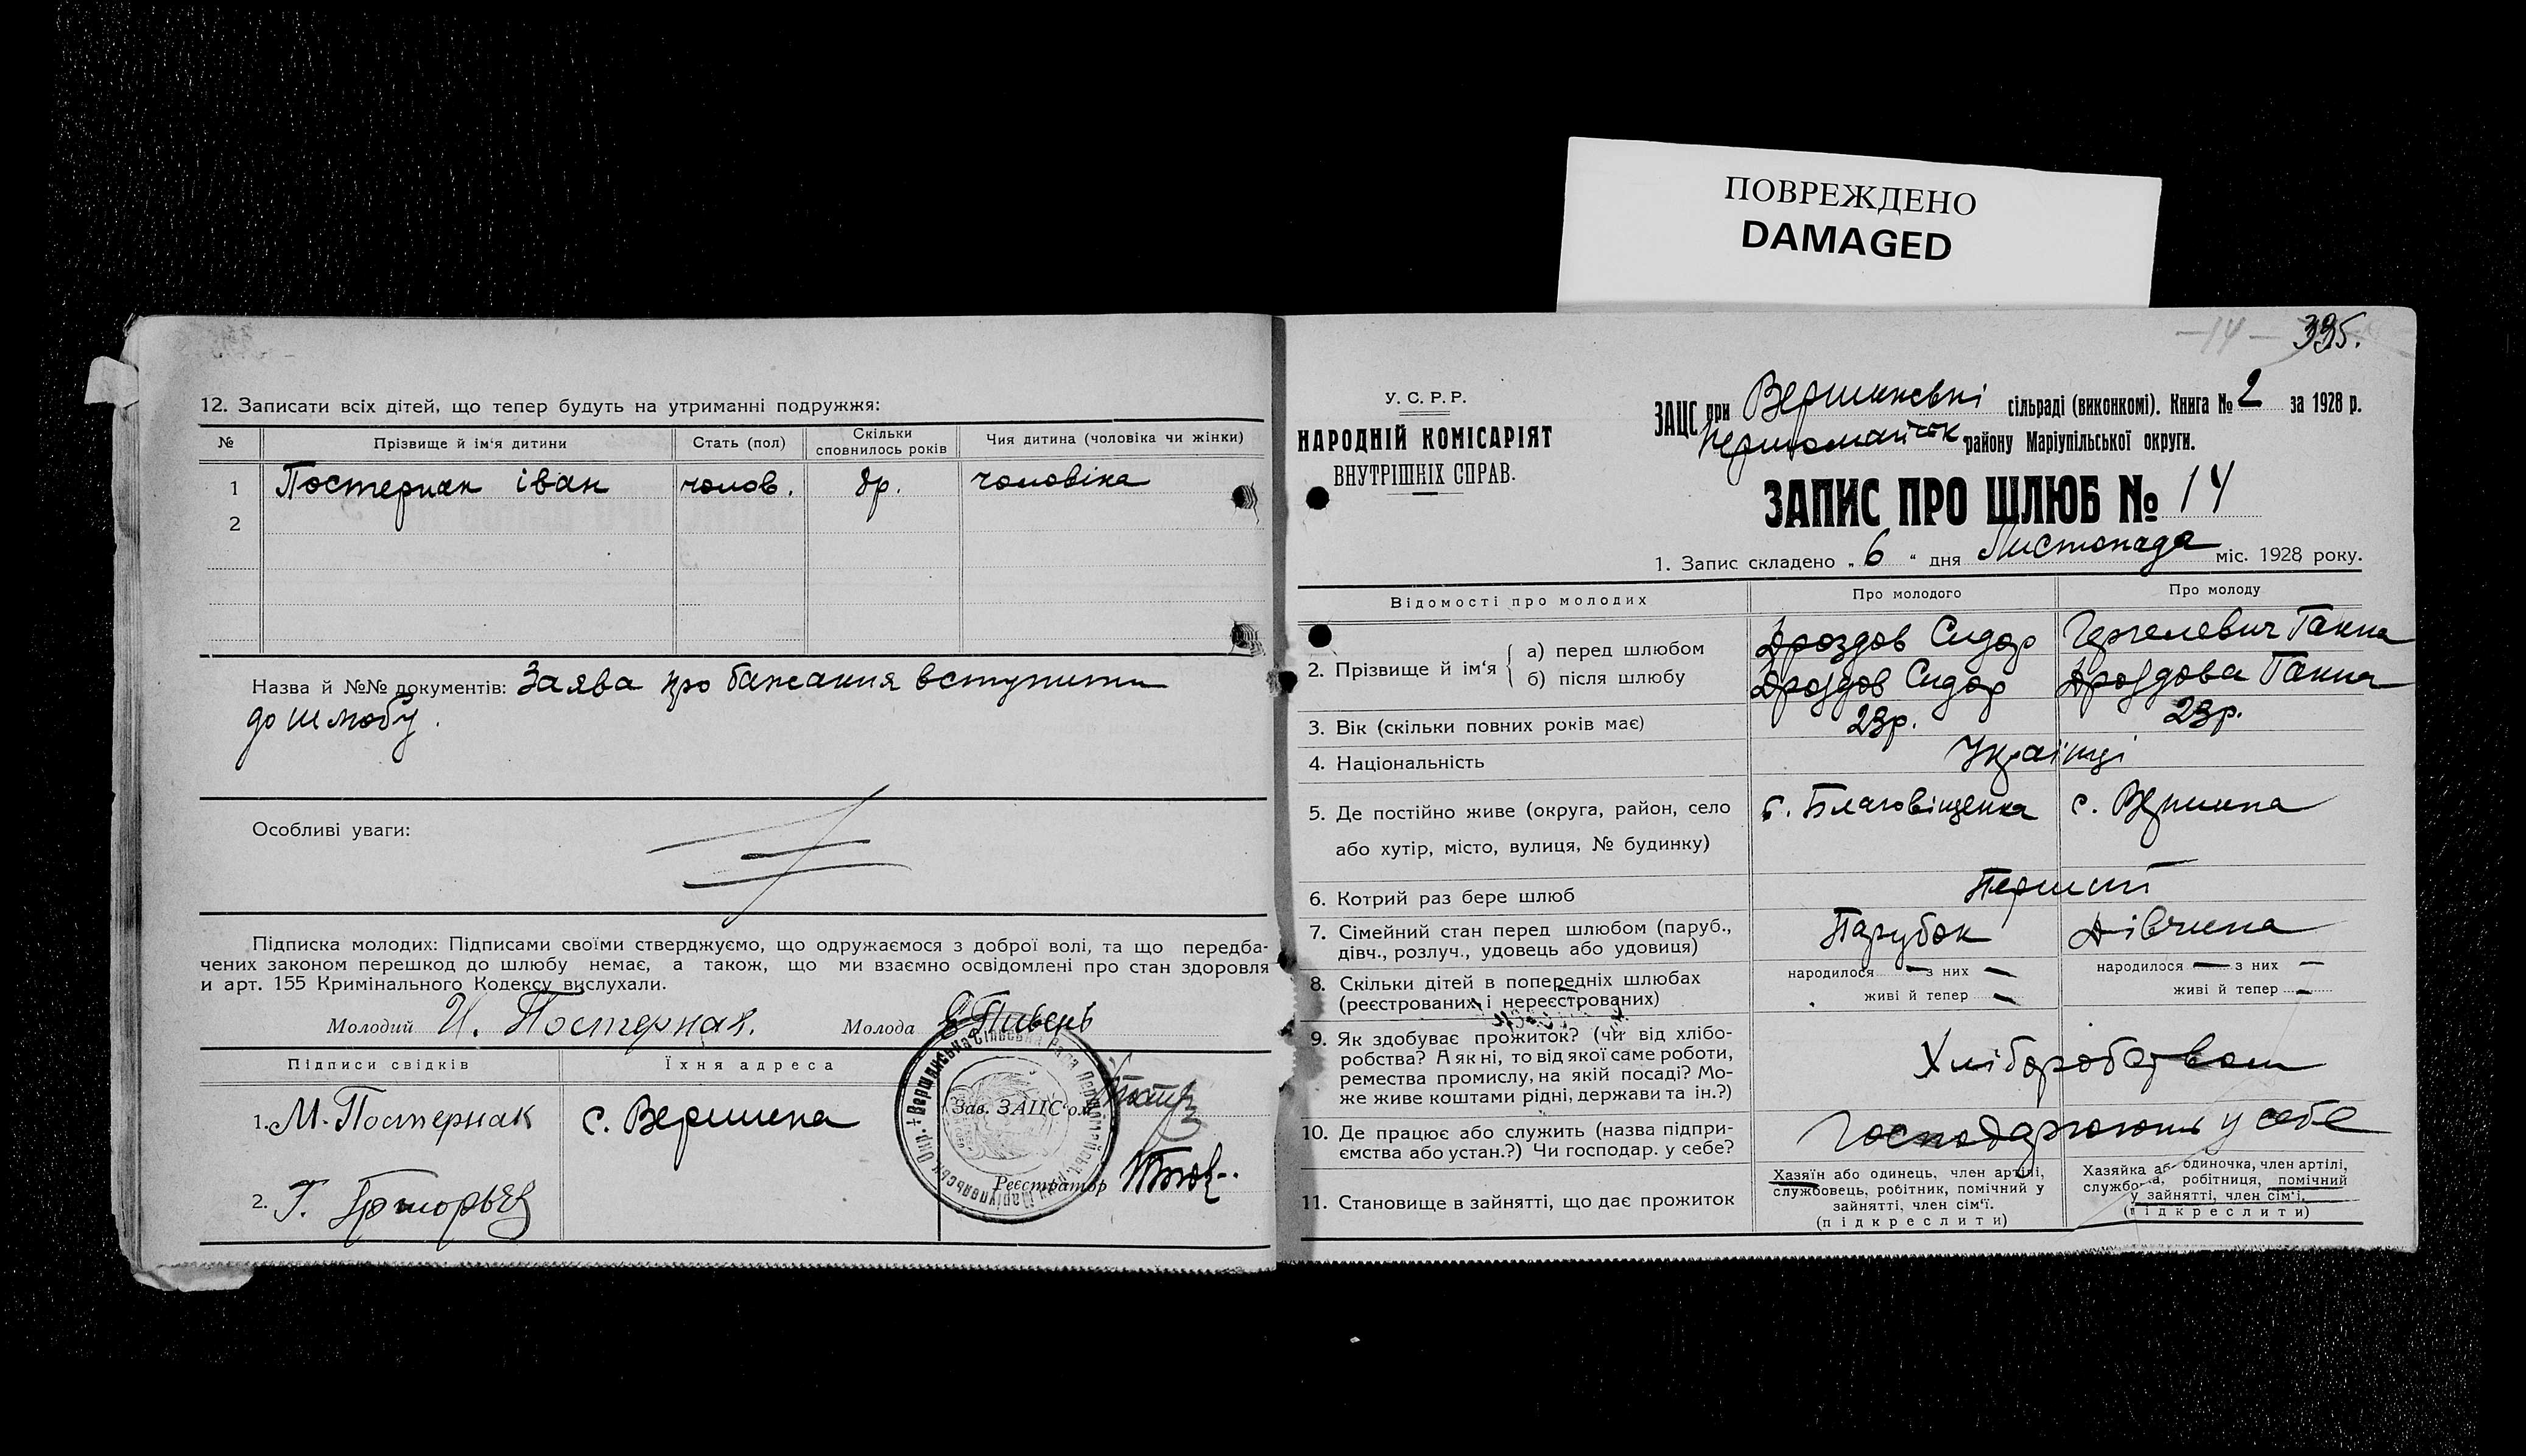 ПОВРЕЖДЕНО
DAMAGED
12. Записати всіх дітей, що тепер будуть на утриманні подружжя:
№ Прізвище й ім'я дитини Стать (пол) Скільки сповнилось років Чия дитина (чоловіка чи жінки)
1 Постернак іван чолов. 8р. чоловіка
2
Назва й №№ документів: Заява про бажання вступити
до шлюбу.
Особливі уваги:
Підписка молодих: Підписами своїми стверджуємо, що одружаємося з доброї волі, та що передба-
чених законом перешкод до шлюбу немає, а також, що ми взаємно освідомлені про стан здоровля
и арт. 155 Кримінального Кодексу вислухали.
Молодий И. Постернак. Молода Пивень
Підписи свідків Їхня адреса
1. М. Постернак с. Вершина
Зав. ЗАЦС'ом
Реєстратор
2. Г.
Вершинська Сільська Рада
— 14 — 395.
У.С.Р.Р.
НАРОДНІЙ КОМІСАРІЯТ
ВНУТРІШНІХ СПРАВ.
ЗАЦС при Вершинській сільраді (виконкомі). Книга № 2 за 1928 р.
Першомайськ району Маріупільської округи.
ЗАПИС ПРО ШЛЮБ № 14
1. Запис складено „ 6 “ дня Листопада міс. 1928 року.
Відомості про молодих Про молодого Про молоду
2. Прізвище й ім'я
а) перед шлюбом Дроздов Сидор Ганна
б) після шлюбу Дроздов Сидор Дроздова Ганна
3. Вік (скільки повних років має) 23р. 23р.
4. Національність Українці
5. Де постійно живе (округа, район, село
або хутір, місто, вулиця, № будинку)
с. Благовіщенка с. Вершина
6. Котрий раз бере шлюб Перший
7. Сімейний стан перед шлюбом (паруб.,
дівч., розлуч., удовець або удовиця)
Парубок Дівчина
8. Скільки дітей в попередніх шлюбах
(реєстрованих і нереєстрованих)
народилося — з них —
живі й тепер —
народилося — з них —
живі й тепер —
9. Як здобуває прожиток? (чи від хлібо-
робства? А як ні, то від якої саме роботи,
ремества промислу, на якій посаді? Мо-
же живе коштами рідні, держави та ін.?)
Хліборобством
10. Де працює або служить (назва підпри-
ємства або устан.?) Чи господар. у себе?
Господарюють у себе
11. Становище в зайнятті, що дає прожиток
Хазяїн або одинець, член артілі,
службовець, робітник, помічний у
зайнятті, член сім'ї.
(підкреслити)
Хазяйка аб одиночка, член артілі,
службо а, робітниця, помічний
у зайнятті, член сім'ї.
(підкреслити)